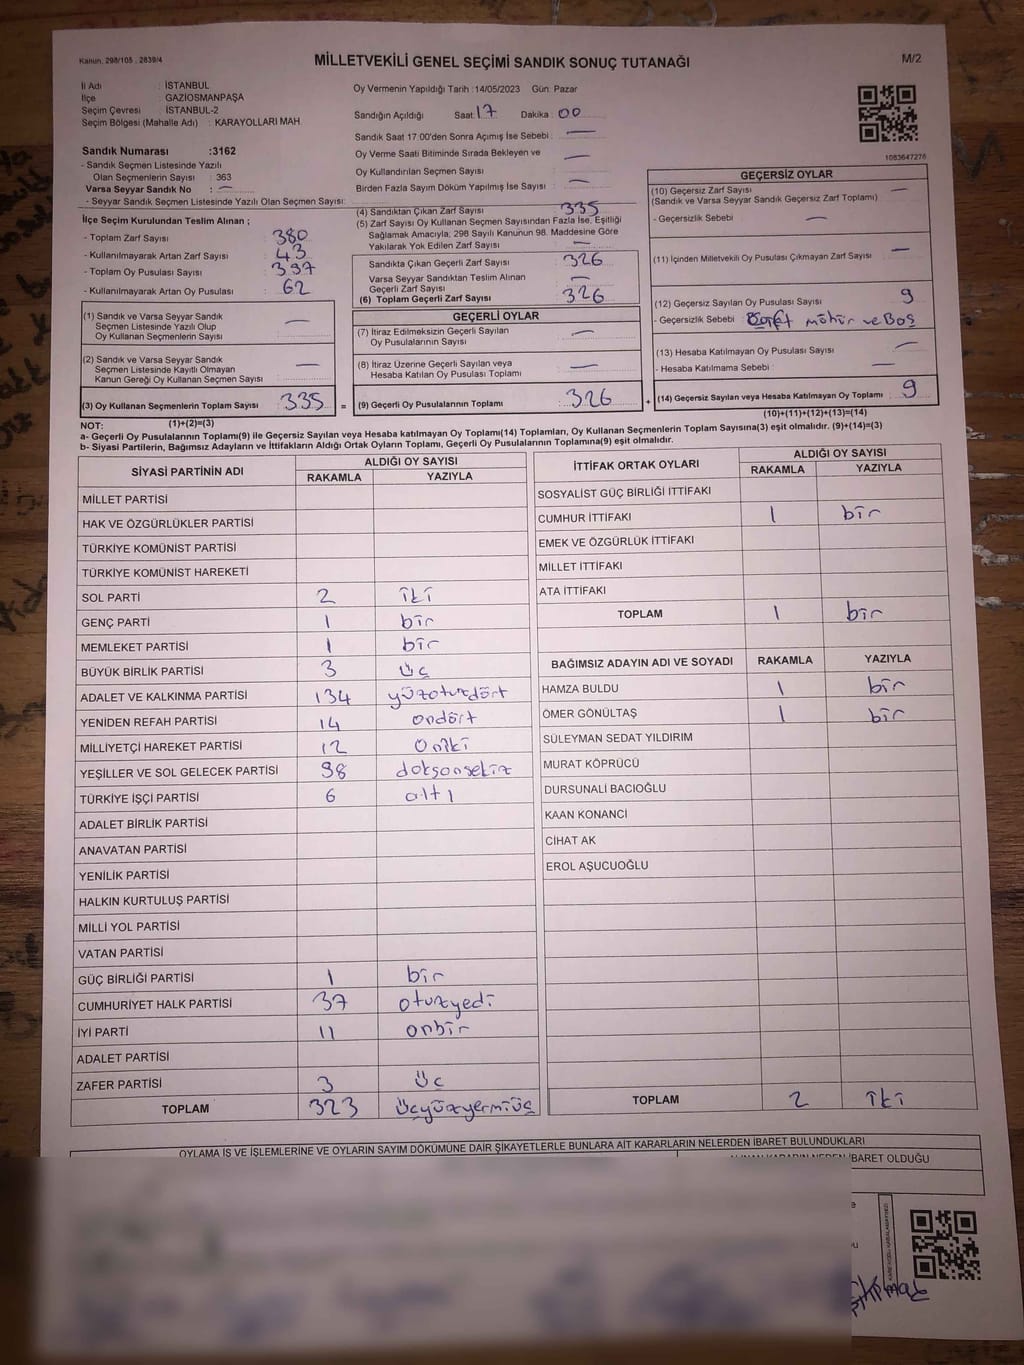 Kanun. 298/105 , 2839/4
MİLLETVEKİLİ GENEL SEÇİMİ SANDIK SONUÇ TUTANAĞI
M/2
İl Adı : İSTANBUL
İlçe : GAZİOSMANPAŞA
Seçim Çevresi : İSTANBUL-2
Seçim Bölgesi (Mahalle Adı) : KARAYOLLARI MAH.
Sandık Numarası :3162
- Sandık Seçmen Listesinde Yazılı
Olan Seçmenlerin Sayısı : 363
Varsa Seyyar Sandık No : —
- Seyyar Sandık Seçmen Listesinde Yazılı Olan Seçmen Sayısı:
Oy Vermenin Yapıldığı Tarih :14/05/2023 Gün: Pazar
Sandığın Açıldığı Saat: 17 Dakika : 00
Sandık Saat 17:00'den Sonra Açımış İse Sebebi : —
Oy Verme Saati Bitiminde Sırada Bekleyen ve
Oy Kullandırılan Seçmen Sayısı : —
Birden Fazla Sayım Döküm Yapılmış İse Sayısı : —
1083647276
İlçe Seçim Kurulundan Teslim Alınan ;
- Toplam Zarf Sayısı : 380
- Kullanılmayarak Artan Zarf Sayısı : 43
- Toplam Oy Pusulası Sayısı : 397
- Kullanılmayarak Artan Oy Pusulası : 62
(1) Sandık ve Varsa Seyyar Sandık
Seçmen Listesinde Yazılı Olup
Oy Kullanan Seçmenlerin Sayısı : —
(2) Sandık ve Varsa Seyyar Sandık
Seçmen Listesinde Kayıtlı Olmayan
Kanun Gereği Oy Kullanan Seçmen Sayısı : —
(3) Oy Kullanan Seçmenlerin Toplam Sayısı : 335
(1)+(2)=(3)
(4) Sandıktan Çıkan Zarf Sayısı : 335
(5) Zarf Sayısı Oy Kullanan Seçmen Sayısından Fazla İse, Eşitliği
Sağlamak Amacıyla, 298 Sayılı Kanunun 98. Maddesine Göre
Yakılarak Yok Edilen Zarf Sayısı : —
Sandıkta Çıkan Geçerli Zarf Sayısı : 326
Varsa Seyyar Sandıktan Teslim Alınan
Geçerli Zarf Sayısı : —
(6) Toplam Geçerli Zarf Sayısı : 326
GEÇERLİ OYLAR
(7) İtiraz Edilmeksizin Geçerli Sayılan
Oy Pusulalarının Sayısı : —
(8) İtiraz Üzerine Geçerli Sayılan veya
Hesaba Katılan Oy Pusulası Toplamı : —
= (9) Geçerli Oy Pusulalarının Toplamı : 326
GEÇERSİZ OYLAR
(10) Geçersiz Zarf Sayısı : —
(Sandık ve Varsa Seyyar Sandık Geçersiz Zarf Toplamı)
- Geçersizlik Sebebi : —
(11) İçinden Milletvekili Oy Pusulası Çıkmayan Zarf Sayısı : —
(12) Geçersiz Sayılan Oy Pusulası Sayısı : 9
- Geçersizlik Sebebi : mühür ve Boş
(13) Hesaba Katılmayan Oy Pusulası Sayısı : —
- Hesaba Katılmama Sebebi : —
+ (14) Geçersiz Sayılan veya Hesaba Katılmayan Oy Toplamı : 9
(10)+(11)+(12)+(13)=(14)
NOT:
a- Geçerli Oy Pusulalarının Toplamı(9) ile Geçersiz Sayılan veya Hesaba katılmayan Oy Toplamı(14) Toplamları, Oy Kullanan Seçmenlerin Toplam Sayısına(3) eşit olmalıdır. (9)+(14)=(3)
b- Siyasi Partilerin, Bağımsız Adayların ve İttifakların Aldığı Ortak Oyların Toplamı, Geçerli Oy Pusulalarının Toplamına(9) eşit olmalıdır.
SİYASİ PARTİNİN ADI
ALDIĞI OY SAYISI
RAKAMLA YAZIYLA
MİLLET PARTİSİ
HAK VE ÖZGÜRLÜKLER PARTİSİ
TÜRKİYE KOMÜNİST PARTİSİ
TÜRKİYE KOMÜNİST HAREKETİ
SOL PARTİ 2 iki
GENÇ PARTİ 1 bir
MEMLEKET PARTİSİ 1 bir
BÜYÜK BİRLİK PARTİSİ 3 üç
ADALET VE KALKINMA PARTİSİ 134 yüzotuzdört
YENİDEN REFAH PARTİSİ 14 ondört
MİLLİYETÇİ HAREKET PARTİSİ 12 oniki
YEŞİLLER VE SOL GELECEK PARTİSİ 98 doksansekiz
TÜRKİYE İŞÇİ PARTİSİ 6 altı
ADALET BİRLİK PARTİSİ
ANAVATAN PARTİSİ
YENİLİK PARTİSİ
HALKIN KURTULUŞ PARTİSİ
MİLLİ YOL PARTİSİ
VATAN PARTİSİ
GÜÇ BİRLİĞİ PARTİSİ 1 bir
CUMHURİYET HALK PARTİSİ 37 otuzyedi
İYİ PARTİ 11 onbir
ADALET PARTİSİ
ZAFER PARTİSİ 3 üç
TOPLAM 323 üçyüzyermiüç
İTTİFAK ORTAK OYLARI
ALDIĞI OY SAYISI
RAKAMLA YAZIYLA
SOSYALİST GÜÇ BİRLİĞİ İTTİFAKI
CUMHUR İTTİFAKI 1 bir
EMEK VE ÖZGÜRLÜK İTTİFAKI
MİLLET İTTİFAKI
ATA İTTİFAKI
TOPLAM 1 bir
BAĞIMSIZ ADAYIN ADI VE SOYADI RAKAMLA YAZIYLA
HAMZA BULDU 1 bir
ÖMER GÖNÜLTAŞ 1 bir
SÜLEYMAN SEDAT YILDIRIM
MURAT KÖPRÜCÜ
DURSUNALİ BACIOĞLU
KAAN KONANCİ
CİHAT AK
EROL AŞUCUOĞLU
TOPLAM 2 iki
OYLAMA İŞ VE İŞLEMLERİNE VE OYLARIN SAYIM DÖKÜMÜNE DAİR ŞİKAYETLERLE BUNLARA AİT KARARLARIN NELERDEN İBARET BULUNDUKLARI
ALINAN KARARIN NEDEN İBARET OLDUĞU